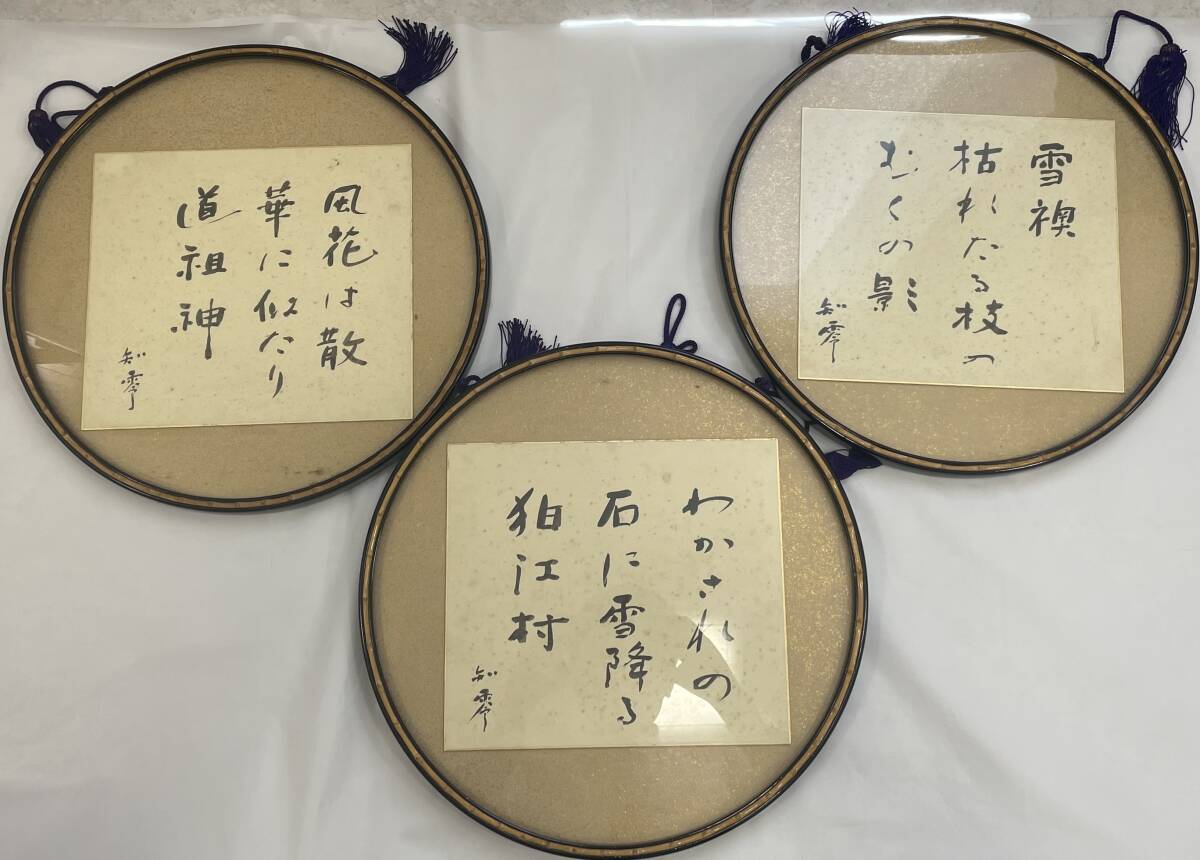 風花は散
華に似たり
道祖神
知零
雪襖
枯れたる枝の
むくの影
知零
わかされの
石に雪降る
狛江村
知零